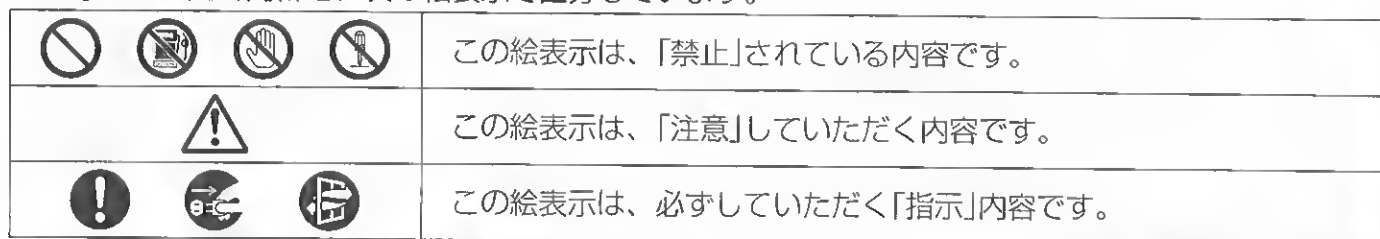 この絵表示は、「禁止」されている内容です。
この絵表示は、「注意」していただく内容です。
この絵表示は、必ずしていただく「指示」内容です。